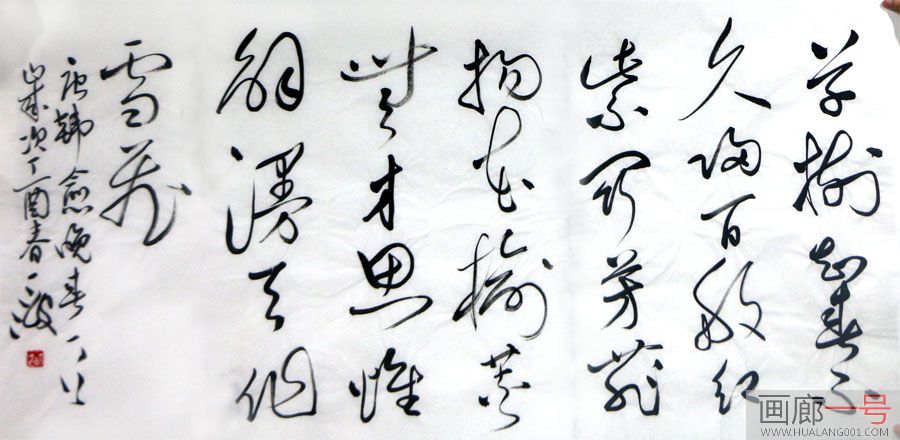 草樹知春不
久歸百般紅
紫鬥芳菲
楊花榆荚
無才思惟
解漫天作
雪飛
唐韓愈晚春一首
歲次丁酉春
画廊一号
WWW.HUALANG001.COM